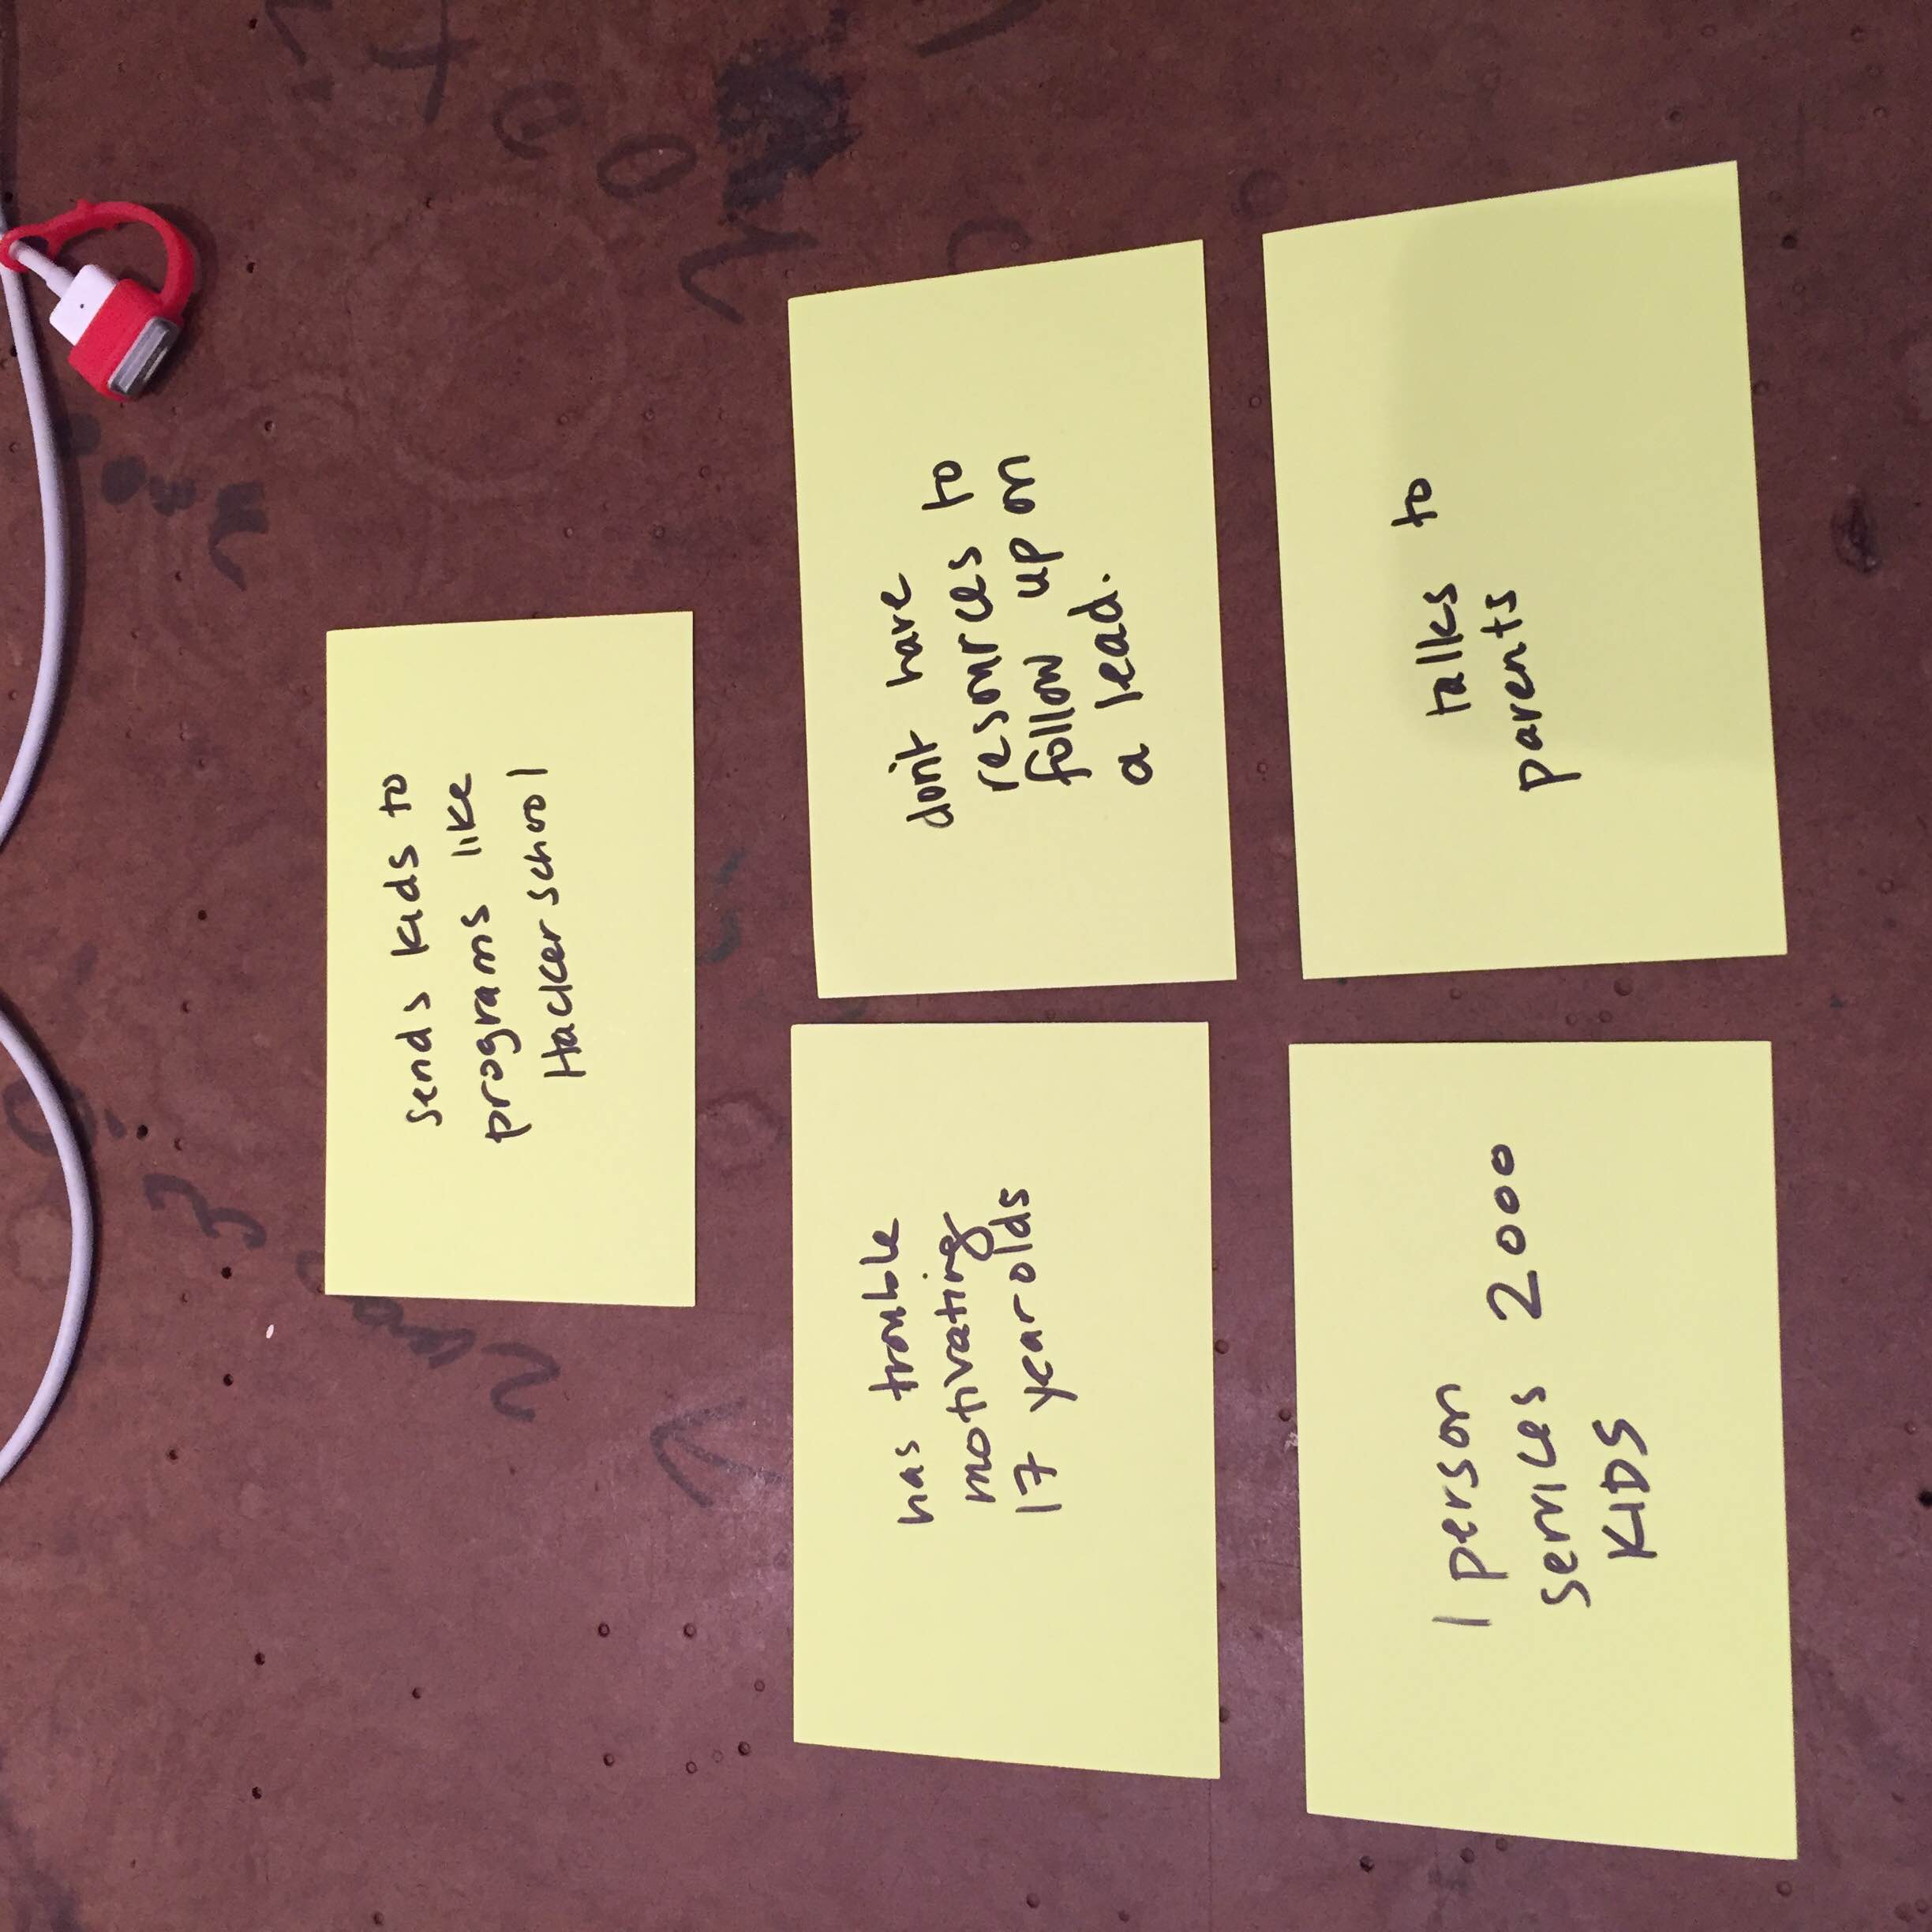 sends kids to
programs like
Hacker school
has trouble
motivating
17 year olds
don't have
resources to
follow up on
a lead.
1 person
services 2000
KIDS
talks to
parents